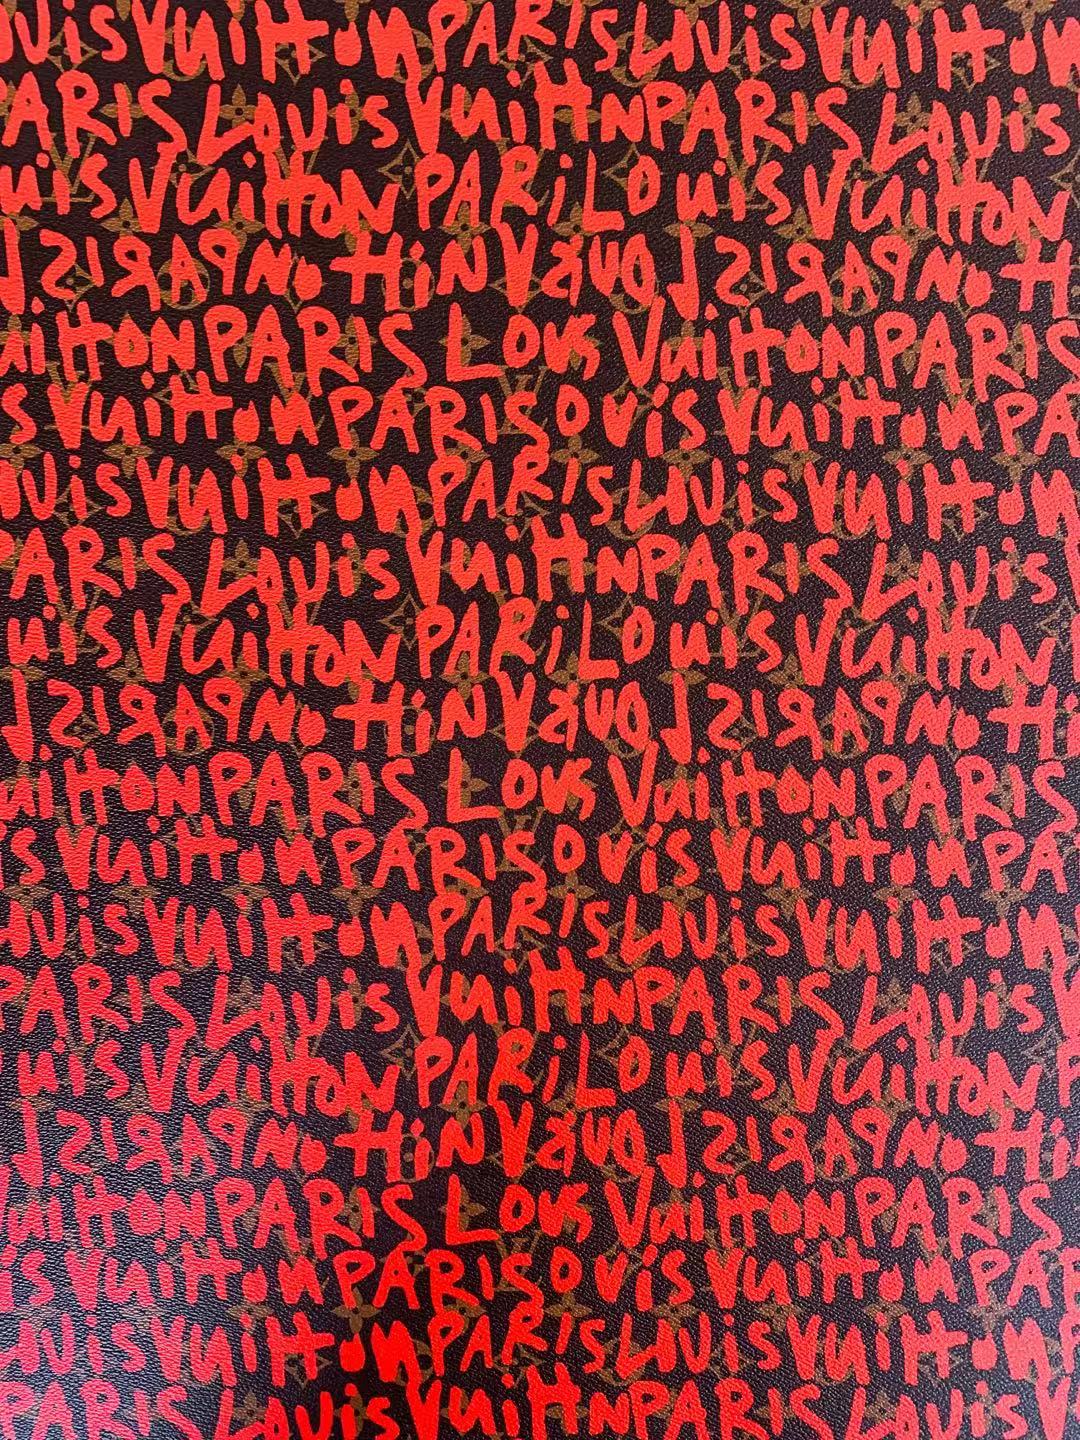 OUis VuittoN PARIS LOUis Vuitton
PARIS LOUis VuittN PARIS LOUis
uis VuittoN PARi LOuis VuittoN
L SIRAP No ttiN VsuoL SIRAP No tt
uittoN PARIS LOUS VuittoN PARIS
S Vuitt.N PARIS OUis Vuitt.N PA
OUis VuittoN PARIS LOUis VuittoN
PARIS LOUis VuittN PARIS LOUis V
uis VuittoN PARi LOuis VuittoN
L SIRAP No ttiN VsuoL SIRAP No tti
uittoN PARIS LOUS VuittoN PARIS
is Vuitt.N PARIS OUis Vuitt.N PA
OUis VuittoN PARIS LOUis VuittoN
PARIS LOUis VuittN PARIS LOUis V
uis VuittoN PARi LOuis VuittoN P
L SIRAP No ttiN VsuoL SIRAP No tti
uittoN PARIS LOUS VuittoN PARIS
is Vuitt.N PARIS OUis Vuitt.N PAR
OUis VuittoN PARIS LOUis VuittoN
PARIS LOUis VuittN PARIS LOUis V